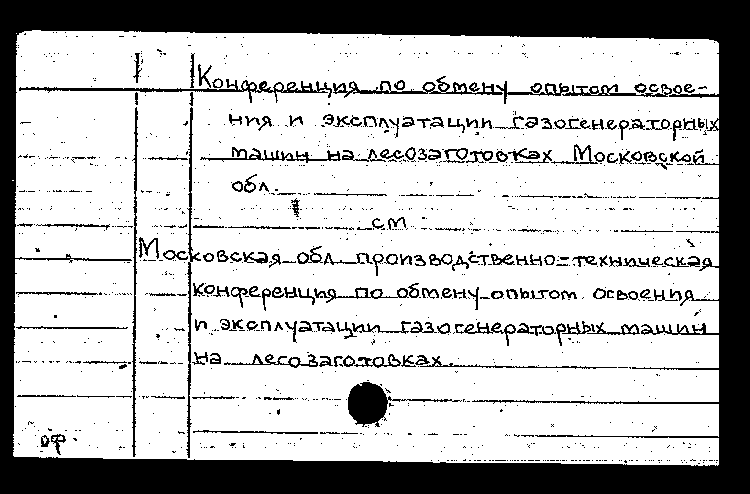 Конференция по обмену опытом освое-
ния и эксплуатации газогенераторных
машин на лесозаготовках Московской
обл.
см
Московская обл. производственно-техническая
конференция по обмену опытом освоения
и эксплуатации газогенераторных машин
на лесозаготовках.
оф